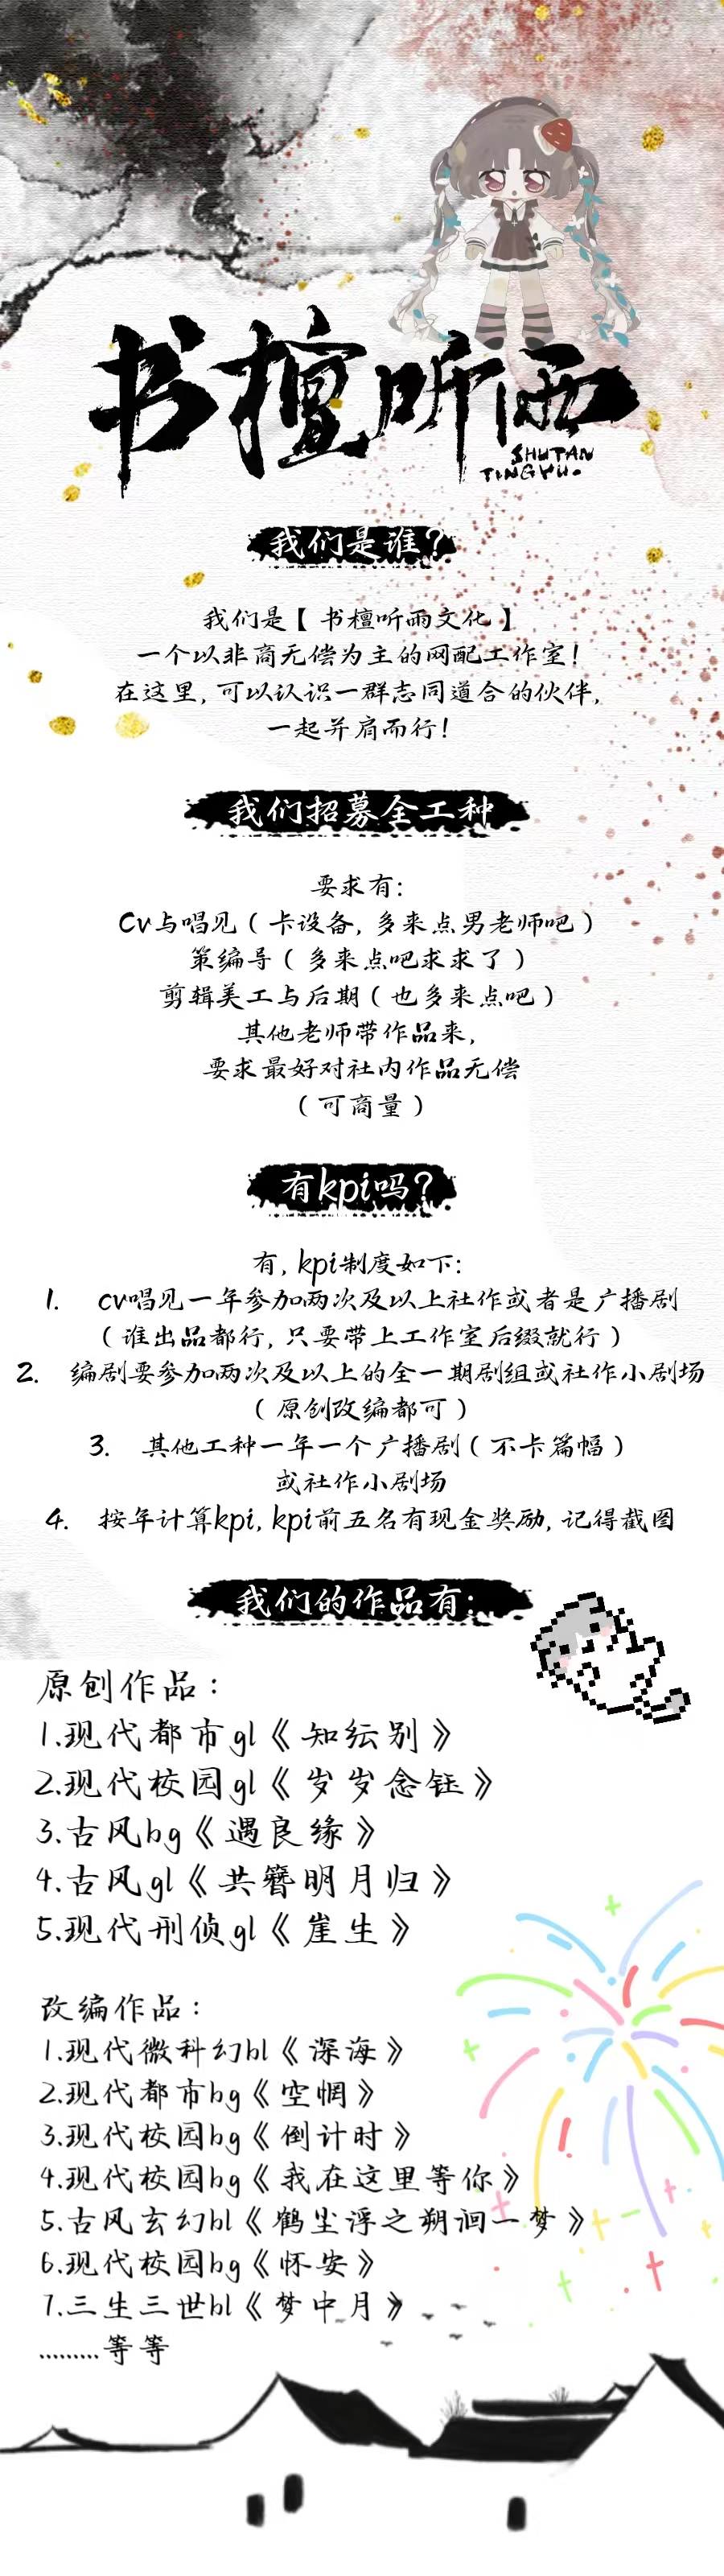 书檀听雨
SHUTAN
TINGYU.
我们是谁？
我们是【书檀听雨文化】
一个以非商无偿为主的网配工作室！
在这里，可以认识一群志同道合的伙伴，
一起并肩而行！
我们招募全工种
要求有：
Cv与唱见（卡设备，多来点男老师吧）
策编导（多来点吧求求了）
剪辑美工与后期（也多来点吧）
其他老师带作品来，
要求最好对社内作品无偿
（可商量）
有kpi吗？
有，kpi制度如下：
1. cv唱见一年参加两次及以上社作或者是广播剧
（谁出品都行，只要带上工作室后缀就行）
2. 编剧要参加两次及以上的全一期剧组或社作小剧场
（原创改编都可）
3. 其他工种一年一个广播剧（不卡篇幅）
或社作小剧场
4. 按年计算kpi，kpi前五名有现金奖励，记得截图
我们的作品有：
原创作品：
1.现代都市gl《知纭别》
2.现代校园gl《岁岁念钰》
3.古风bg《遇良缘》
4.古风gl《共簪明月归》
5.现代刑侦gl《崖生》
改编作品：
1.现代微科幻bl《深海》
2.现代都市bg《空惘》
3.现代校园bg《倒计时》
4.现代校园bg《我在这里等你》
5.古风玄幻bl《鹤尘浮之朔洄一梦》
6.现代校园bg《怀安》
7.三生三世bl《梦中月》
.........等等